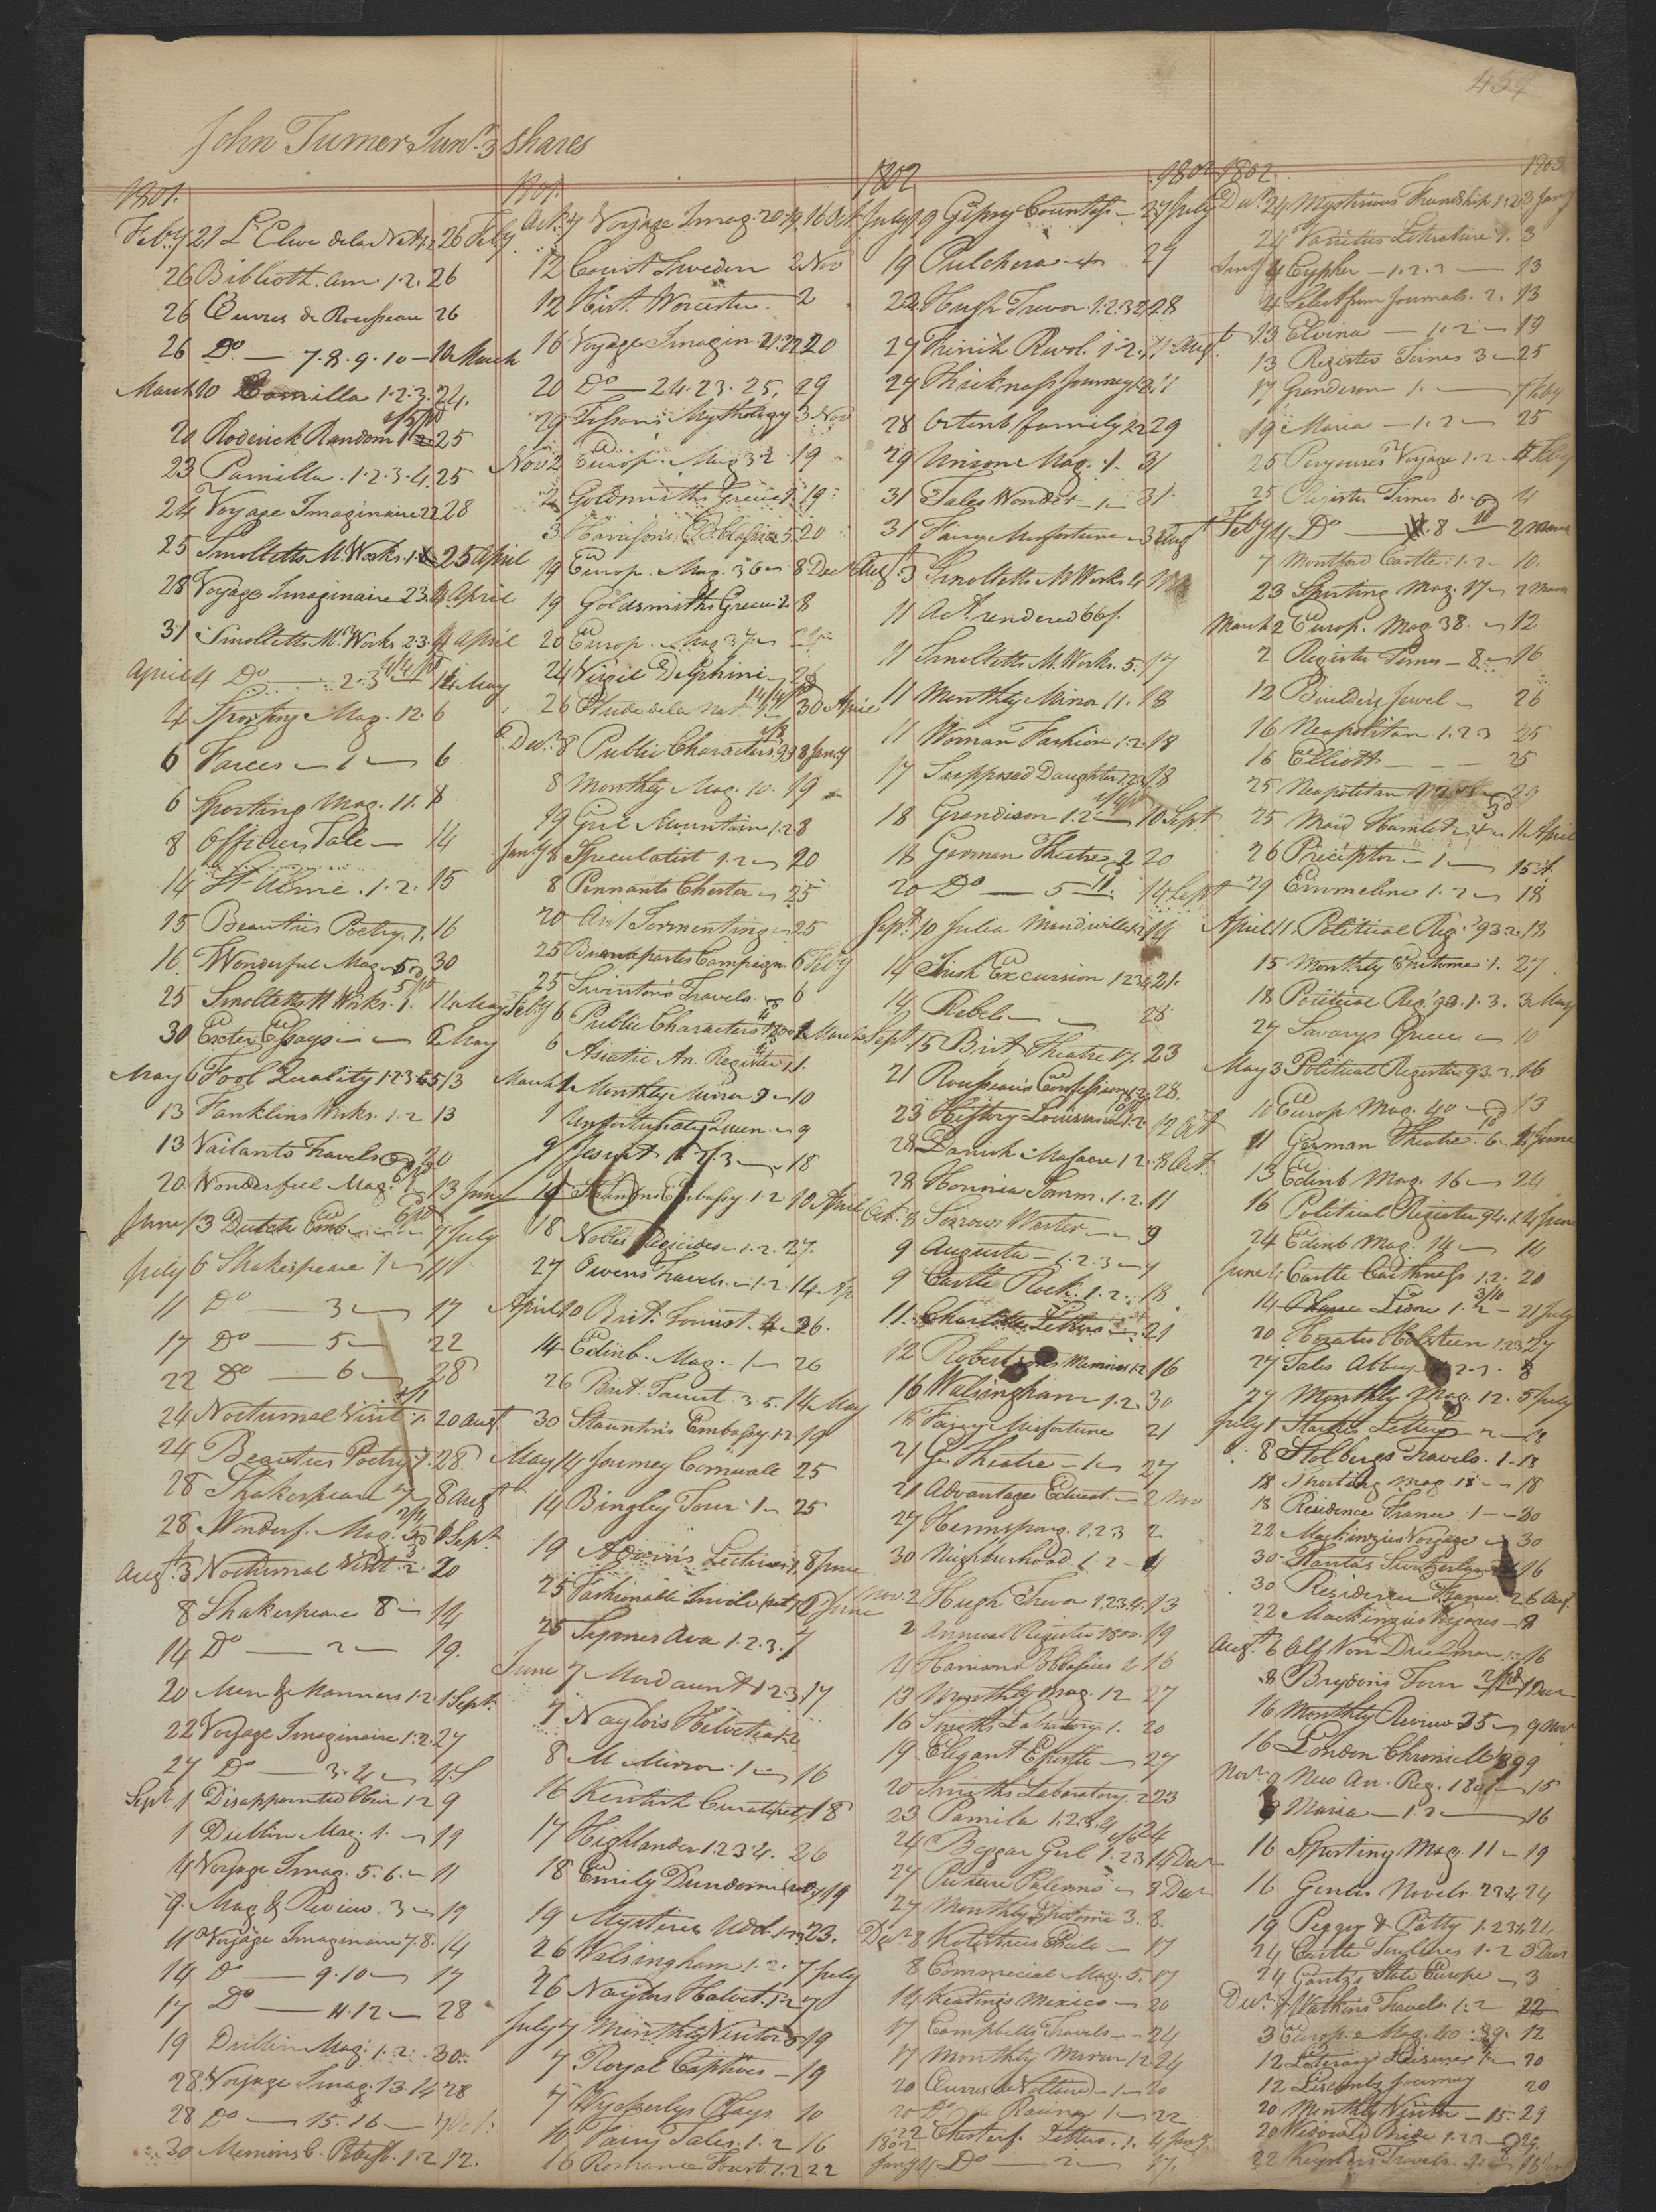 454
John Turner Junr. 3 shares
1801.
Feby 21 L'Eleve de la Nat. 1.2 26 Feby
26 Biblioth. Am. 1.2. 26
26 Œuvres de Rousseau 26
26 Do — 7.8.9.10 — 10 March
March 10 Camilla 1.2.3. 24.
20 Roderick Random 25
23 Pamilla. 1.2.3.4. 25
24 Voyage Imaginaire 22 28
25 Smolletts M. Works. 1. 25 April
28 Voyage Imaginaire 23. 4 April
31 Smolletts M. Works 2.3. 4 April
April 4 Do — 2.3 — 14 May
4 Sporting Mag. 12 6
6 Farces — 1 — 6
6 Sporting Mag. 11. 8
8 Officers Tale — 14
14 St. Alme. 1.2. 15
15 Beauties Poetry. 1. 16
16 Wonderful Mag. 5 30
25 Smolletts M Works. 1. 14 May
30 Exeter Essays — 6 May
May 6 Fool Quality 1.2.3.4.5 13
13 Franklins Works. 1.2 13
13 Vailants Travels 20
20 Wonderful Mag. 13 June
June 13 Dutch Emb. — 7 July
July 6 Shakespeare 1 — 11
11 Do — 3 — 17
17 Do — 5 — 22
22 Do — 6 — 28
24 Nocturnal Visit 1. 20 Augt
24 Beauties Poetry 1. 28
28 Shakespeare 7 — 8 Augt
28 Wonderf. Mag. 5 1 Sept.
Augt. 3 Nocturnal Visit. 2. 20
8 Shakespeare 8 — 14
14 Do — 2 — 19.
20 Men & Manners 1.2 1 Sept.
22 Voyage Imaginaire 1.2. 27
27 Do — 3.4 — 4 S
Sept. 1 Disappointed Heir 1.2 9
1 Dublin Mag. 1. — 19
4 Voyage Imag. 5.6. — 11
9. Mag & Review. 3 — 19
11 Voyage Imaginaire 7.8. 14
14 Do — 9.10 — 17
17 Do — 11.12 — 28
19 Dublin Mag. 1.2. 30
28 Voyage Imag. 13.14 28
28 Do — 15.16 — 7 Oct.
30 Memoirs C. 1.2 12.
1801.
Oct. 7 Voyage Imag. 20.19 16 Oct.
12 Court Sweden 2 Nov
12 Hist. Worcester. 2
16 Voyage Imagin. 21.22 20
20 Do — 24.23.25, 29
29 Mythology 3 Nov
Nov 2 Europ. Mag 32. 19
2 Goldsmiths Greece 1. 19
3 Harrisons B. Classics 5. 20
19 Europ. Mag. 36 — 8 Dec
19 Goldsmiths Greece 2 8
20 Europ. Mag 37 —
24 Virgil Delphini — 26
26 Etude de la Nat. 30 April
Decr. 8 Public Characters 8 Jany
8 Monthly Mag. 10. 19
19 Girl Mountain 1.2 8
Jany 8 Speculatist 1.2 — 20
8 Pennants Chester — 25
20 Art Tormenting — 25
25 Buonapartes Campaign. 6 Feby
25 Swintons Travels. 6
Feby 6 Public Characters 1800 2 March
6 Asiatic An. Register 1.
March 2 Monthly Mirror 9 — 10
1 Unfortunate Queen. — 9
9 Jesuit 1.2.3 — 18
10 Embassy 1.2 10 April
18 Nobles Regicides — 1.2. 27.
27 Owens Travels. — 1.2. 14 Ap
April 10 Brit. Tourist. 4 — 26.
14 Edinb. Mag. — 1 — 26
26 Brit. Tourist. 3.5. 14 May
30 Stauntons Embassy. 1.2 19
May 14 Journey Cornwall 25
14 Bingley Tour 1 — 25
19 Adams Lectures 1. 8 June
25 Fashionable Involv. 2 June
25 Syrnes Ava 1.2.3. 7
June 7 Mordaunt 1.2.3 17
7 Naylors Helvetia 1.2
8 M Mirror. 1 — 16
16 Kentish Curate 18
17 Highlander 1.2.3.4. 26
18 Emily Dundorne 19
19 Mysterious Wed. 1.2.3 23.
26 Walsingham 1.2. 7 July
26 Naylors Helvet. 1.2 7
July 7 Monthly Visitor 5 19
7 Royal Captives — 19
7 Wycherlys Plays 10
10 Fairy Tales. 1.2 16
16 Romance Forest. 1.2 22
1802 1802
July 19 Gipsy Countess — 27 July
19 Pulchera — 4 27
22 Hugh Trevor 1.2.3 28
27 French Revol. 1.2. 11 Augt.
27 Thickness Journey 1.2. 11
28 Ortenb family 1.2 29
29 Union Mag. 1. 31
31 Tales Wonder — 1 — 31.
31 Fairy Misfortune — 3 Augt
Augt. 3 Smolletts M Works 4 11
11 Act. rendered 66/.
11 Smolletts M. Works. 5. 17
11 Monthly Mirror 11. 18
11 Woman Fashion 1.2. 18
17 Supposed Daughter 1.2.3 18
18 Grandison 1.2 — 10 Sept.
18 German Theatre 2 20
20 Do — 5 — 14 Sept
Sept. 10 Julia Mandiville 1.2 14
14 Irish Excursion 1.2.3.4 21.
14 Rebel — 28
Sept 15 Brit Theatre 17. 23
21 Rousseau's Confessions 1.2. 28.
23 History Louisiana 1.2 12 Oct
28 Danish Massacre 1.2. 8 Oct.
28 Honoria Somm. 1.2. 11
Oct. 8 Sorrows Werter — 9
9 Augusta — 1.2.3 — 9
9 Castle Rock. 1.2. 18
11. Charlottes Letters — 21
12 Robertsons Memoirs 1.2 16
16 Walsingham 1.2. 30
16 Fairy Misfortune 21
21 Ge. Theatre — 1 — 27
21 Advantages Educat. — 2 Nov
27 Hermsprong. 1.2.3 2
30 Neighbourhood. 1.2 — 4
Nov. 2 Hugh Trevor 1.2.3.4. 13
2 Annual Register 1800. 19
4 Harrisons B Classics 4 16
13 Monthly Mag. 12 27
16 Smiths Labratory. 1. 20
19 Elegant Epistle — 27
20 Smiths Laboratory. 2 23
23 Pamila 1.2.3.4 24
24 Beggar Girl 1.2.3 14 Decr
27 Picture Palermo — 8 Decr
27 Monthly Epitome 3. 8.
Decr. 8 Exile — 17
8 Commercial Mag. 5. 17
14 Keatings Mexico — 20
17 Campbells Travels — 24
17 Monthly Mirror 12 24
20 Œuvres de Voltaire — 1 — 20
20 Do de Racine 1 — 22
22 Chesterf. Letters. 1. 4 Jany
1802
Jany 4. Do — 2 — 17.
1802. 1803
Decr. 24 Mysterious Friendship 1.2 3 Jany
24 Varieties Literature 1. 3
Jany 4 Cypher — 1.2.3 — 13
4 Select from Journals. 2. 13
13 Elvina — 1.2 — 19
13 Register Times 3 — 25
17 Grandison 1. — 7 Feby
19 Maria — 1.2 — 25
25 Perrouses Voyage 1.2 — 4 Feby
25 Register Times 6. 4
Feby 4 Do — 8 — 2 March
7 Montford Castle. 1.2 — 10.
23 Sporting Mag. 17 — 2 March
March 2 Europ. Mag 38. — 12
2 Register Times — 8. — 16
12 Builders Jewel — 26
16 Neapolitan 1.2.3 25
16 Elliott — — — 25
25 Neapolitan 1.2 29
25 Maid Hamlet — 11 April
26 Preceptor — 1 — 15
29 Emmeline 1.2 — 18
April 11. Political Reg. '93 2. 18
15 Monthly Epitome 1. 27
18 Political Reg. 93. 1.3. 3 May
27 Savarys Greece — 10
May 3 Political Register 93. 2. 16
10 Europ Mag. 40 — 13
11 German Theatre. 6 — 4 June
13 Edinb Mag. 16 — 24
16 Political Register 94. 1. 4 June
24 Edinb Mag. 14 — 14
June 4 Castle Caithness 1.2. 20
14 1.2 — 21 July
20 Horatio Holstein 1.2.3 27
27 Tales Abbey 1.2.3. 8
27 Monthly Mag. 12. 5 July
July 1 Letters
8 Stolbergs Travels. 1 — 18
18 Sporting Mag 18 — 18
18 Residence France 1 — 30
22 Mackinzies Voyage — 30
30 Plantas Switzerland 16
30 Residence France. 2 6 Aug.
22 Mackinzies Voyages — 8
Augt. 6 Alf Von Duelman 1.2 16
8 Brydons Tour 1 Decr
16 Monthly Review 35 — 9 Nov
16 London Chronicle 89 9
Novr. 9 New An. Reg. 1801 — 15
9 Maria — 1.2 — 16
16 Sporting Mag. 11 — 19
16 Genlis Novels 2.3.4 24
19 Peggy & Patty 1.2.3.4 21
24 Castle Toulures 1.2 3 Decr
24 Gentz's State Europe — 3
Decr. 3 Watkins Travels. 1.2 22
3 Europ. Mag. 40. 39. 12
12 Literary Leisure 1 — 20
12 Liscombs Journey 20
20 Monthly Visitor — 15. 29
20 Widowed Bride 1.2.3 — 29
22 Keyslers Travels.